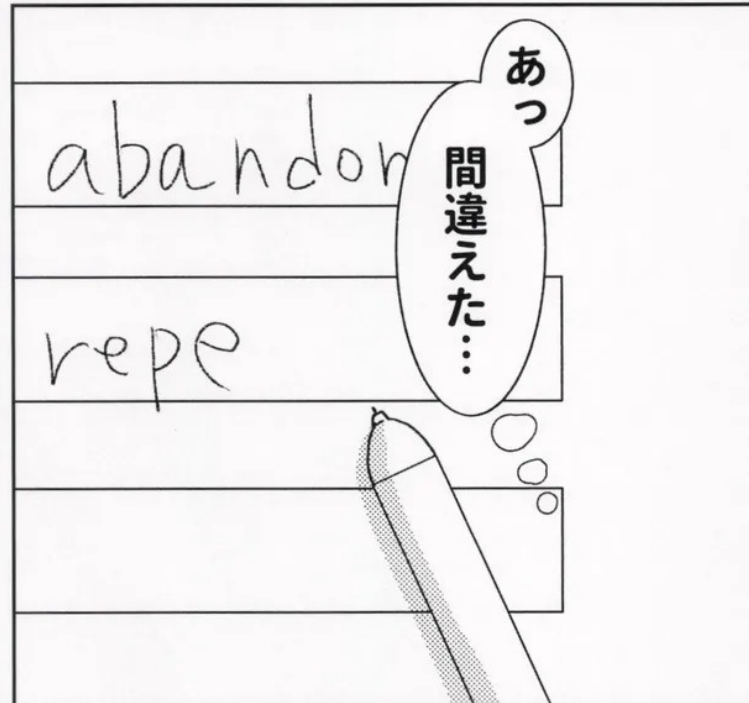 あっ
間違えた…
abandon
repe